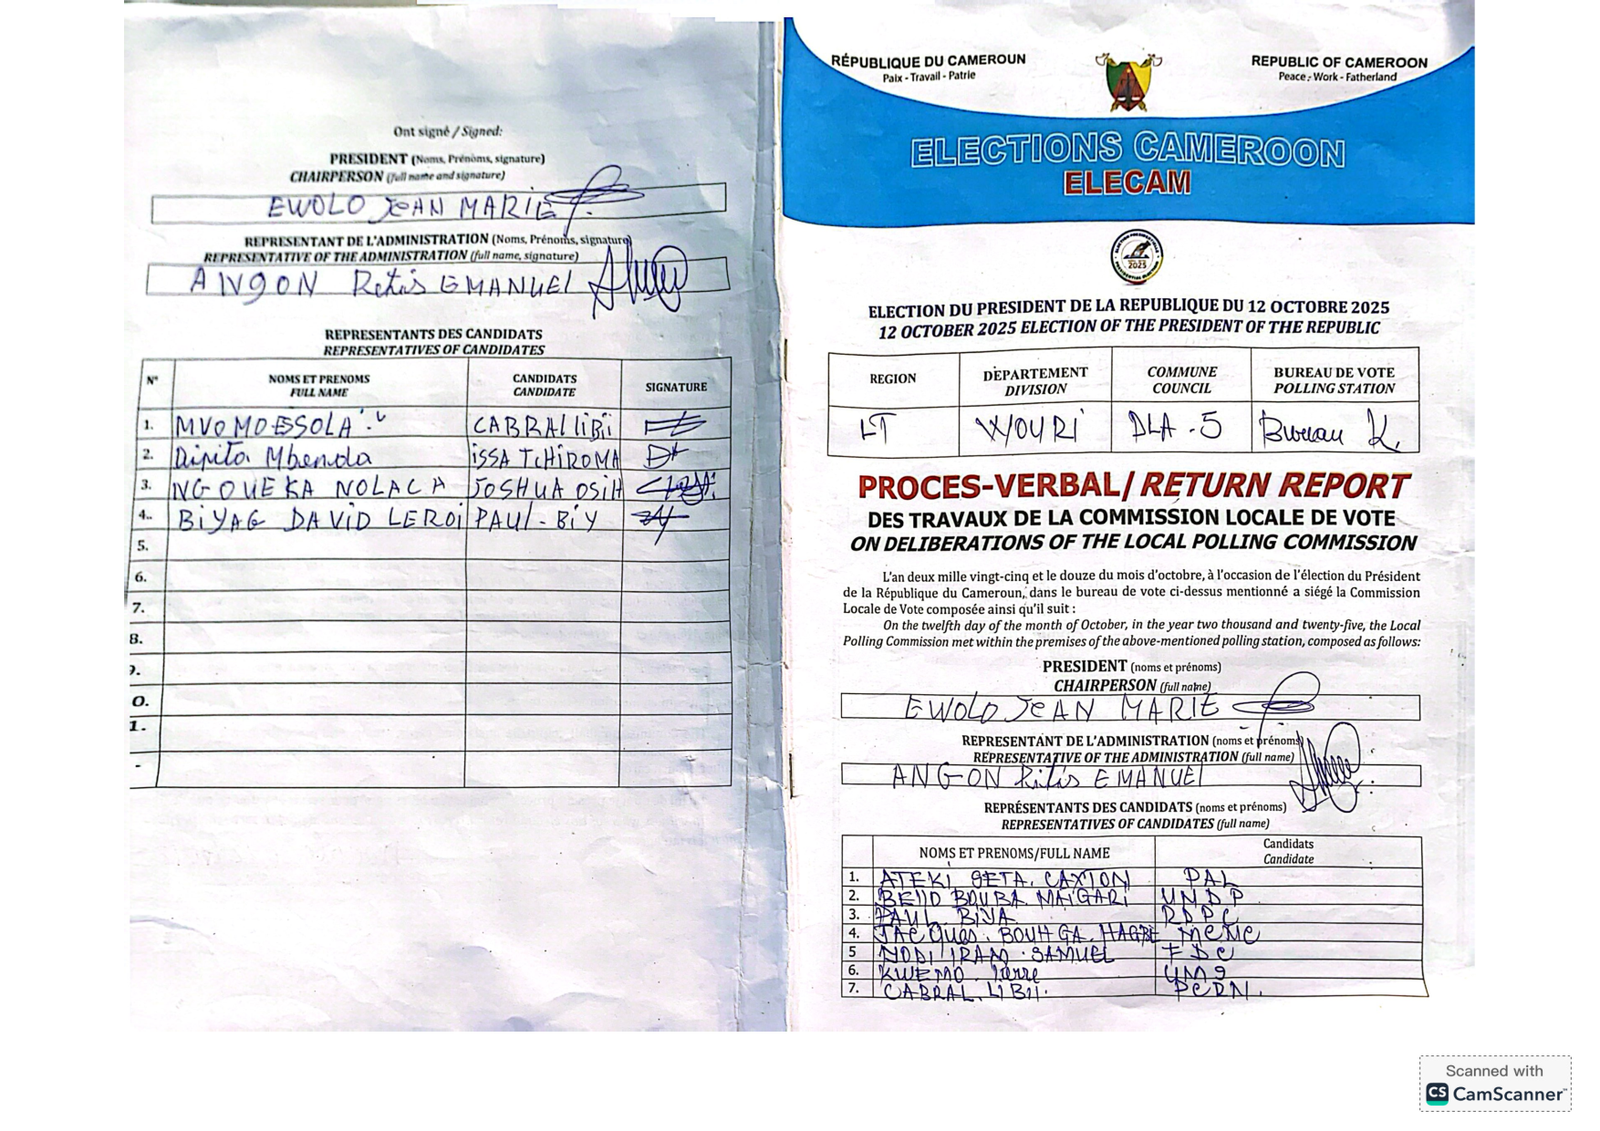 Ont signé / Signed:
PRESIDENT (Noms, Prénoms, signature)
CHAIRPERSON (full name and signature)
EWOLO JEAN MARIE
REPRESENTANT DE L'ADMINISTRATION (Noms, Prénoms, signature)
REPRESENTATIVE OF THE ADMINISTRATION (full name, signature)
ANGON EMANUEL
REPRESENTANTS DES CANDIDATS
REPRESENTATIVES OF CANDIDATES
N° NOMS ET PRENOMS FULL NAME CANDIDATS CANDIDATE SIGNATURE
1. MVOMO ESSOLA CABRAL LIBII
2. Dipita Mbenda ISSA TCHIROMA
3. NGOUEKA NOLACA JOSHUA OSIH
4.. BIYAG DAVID LEROI PAUL-BIY
5.
6.
7.
8.
9.
0.
1.
RÉPUBLIQUE DU CAMEROUN
Paix - Travail - Patrie
REPUBLIC OF CAMEROON
Peace - Work - Fatherland
ELECTIONS CAMEROON
ELECAM
2025
ELECTION DU PRESIDENT DE LA REPUBLIQUE DU 12 OCTOBRE 2025
12 OCTOBER 2025 ELECTION OF THE PRESIDENT OF THE REPUBLIC
REGION DÉPARTEMENT DIVISION COMMUNE COUNCIL BUREAU DE VOTE POLLING STATION
LT WOURI DLA-5 Bureau K
PROCES-VERBAL/ RETURN REPORT
DES TRAVAUX DE LA COMMISSION LOCALE DE VOTE
ON DELIBERATIONS OF THE LOCAL POLLING COMMISSION
L'an deux mille vingt-cinq et le douze du mois d'octobre, à l'occasion de l'élection du Président
de la République du Cameroun, dans le bureau de vote ci-dessus mentionné a siégé la Commission
Locale de Vote composée ainsi qu'il suit :
On the twelfth day of the month of October, in the year two thousand and twenty-five, the Local
Polling Commission met within the premises of the above-mentioned polling station, composed as follows:
PRESIDENT (noms et prénoms)
CHAIRPERSON (full name)
EWOLO JEAN MARIE
REPRESENTANT DE L'ADMINISTRATION (noms et prénoms)
REPRESENTATIVE OF THE ADMINISTRATION (full name)
ANGON EMANUEL
REPRÉSENTANTS DES CANDIDATS (noms et prénoms)
REPRESENTATIVES OF CANDIDATES (full name)
NOMS ET PRENOMS/FULL NAME Candidats Candidate
1. ATEKI SETA CAXTON PAL
2. BELLO BOUBA MAIGARI UNDP
3. PAUL BIYA RDPC
4. JACQUES BOUHGA HAGBE MCNC
5 IRAM SAMUEL FDC
6. KWEMO Pierre UMS
7. CABRAL LIBII PCRN.
Scanned with
CS CamScanner